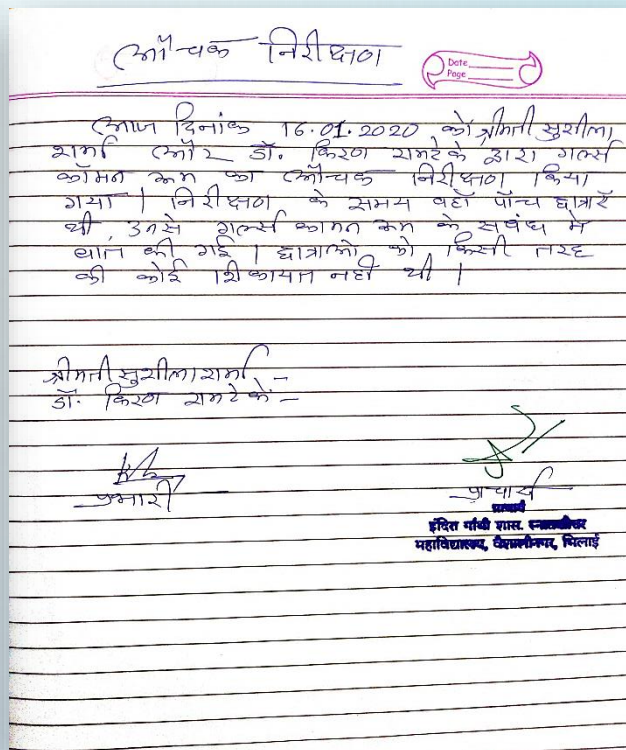 औचक निरीक्षण
Date
Page
आज दिनांक 16.01.2020 को श्रीमती सुशीला
शर्मा और डॉ. किरण रामटेके द्वारा गर्ल्स
कॉमन रूम का औचक निरीक्षण किया
गया । निरीक्षण के समय वहाँ पाँच छात्राऐं
थी, उनसे गर्ल्स कामन रूम के सबंध मे
बात की गई । छात्राओ को किसी तरह
की कोई शिकायत नही थी ।
श्रीमती सुशीला शर्मा -
डॉ. किरण रामटेके -
प्रभारी
प्राचार्य
प्राचार्य
इंदिरा गाँधी शास. स्नातकोत्तर
महाविद्यालय, वैशालीनगर, भिलाई